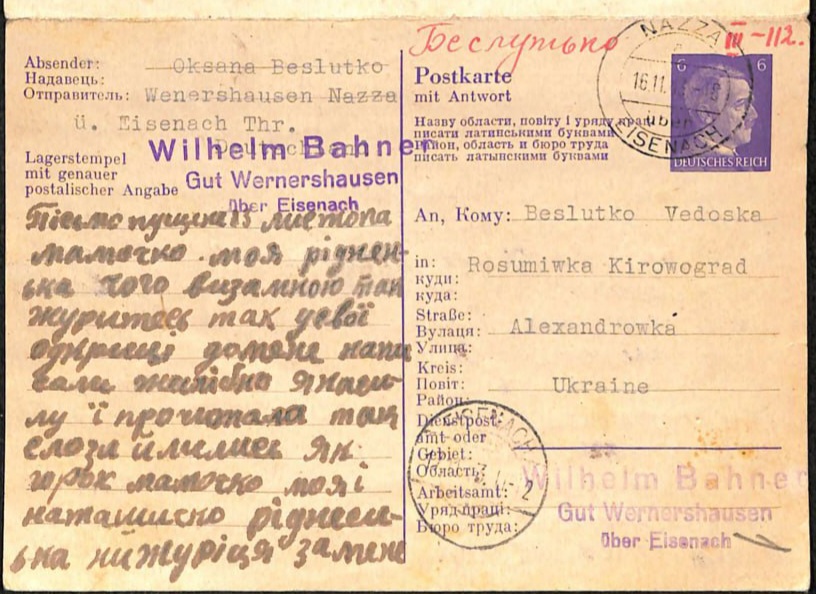 Absender:
Надавець:
Отправитель:
Oksana Beslutko
Wenershausen Nazza
ü. Eisenach Thr.
Lagerstempel
mit genauer
postalischer Angabe
Wilhelm Bahner
Gut Wernershausen
über Eisenach
Письмо пущина 13 листопа
мамочко моя ріднен-
ька чого визамною так
журитесь так у свої
одкриці домене напи
сали жилібно янаси-
лу її прочитала так
слози й лились як
горох мамочко моя і
наташчко ріднесе-
ька ни журіця замене
Беслутько
III-112.
Postkarte
mit Antwort
NAZZA
16.11.
über
EISENACH
6 6
DEUTSCHES REICH
Назву области, повіту і уряду праці
писати латинськими буквами
Район, область и бюро труда
писать латынскими буквами
An, Кому: Beslutko Vedoska
in: Rosumiwka Kirowograd
куди:
куда:
Straße:
Вулаця: Alexandrowka
Улица:
Kreis:
Повіт: Ukraine
Район:
Dienstpost-
amt oder
Gebiet:
Область:
Arbeitsamt:
Уряд праці:
Бюро труда:
EISENACH
Wilhelm Bahner
Gut Wernershausen
über Eisenach